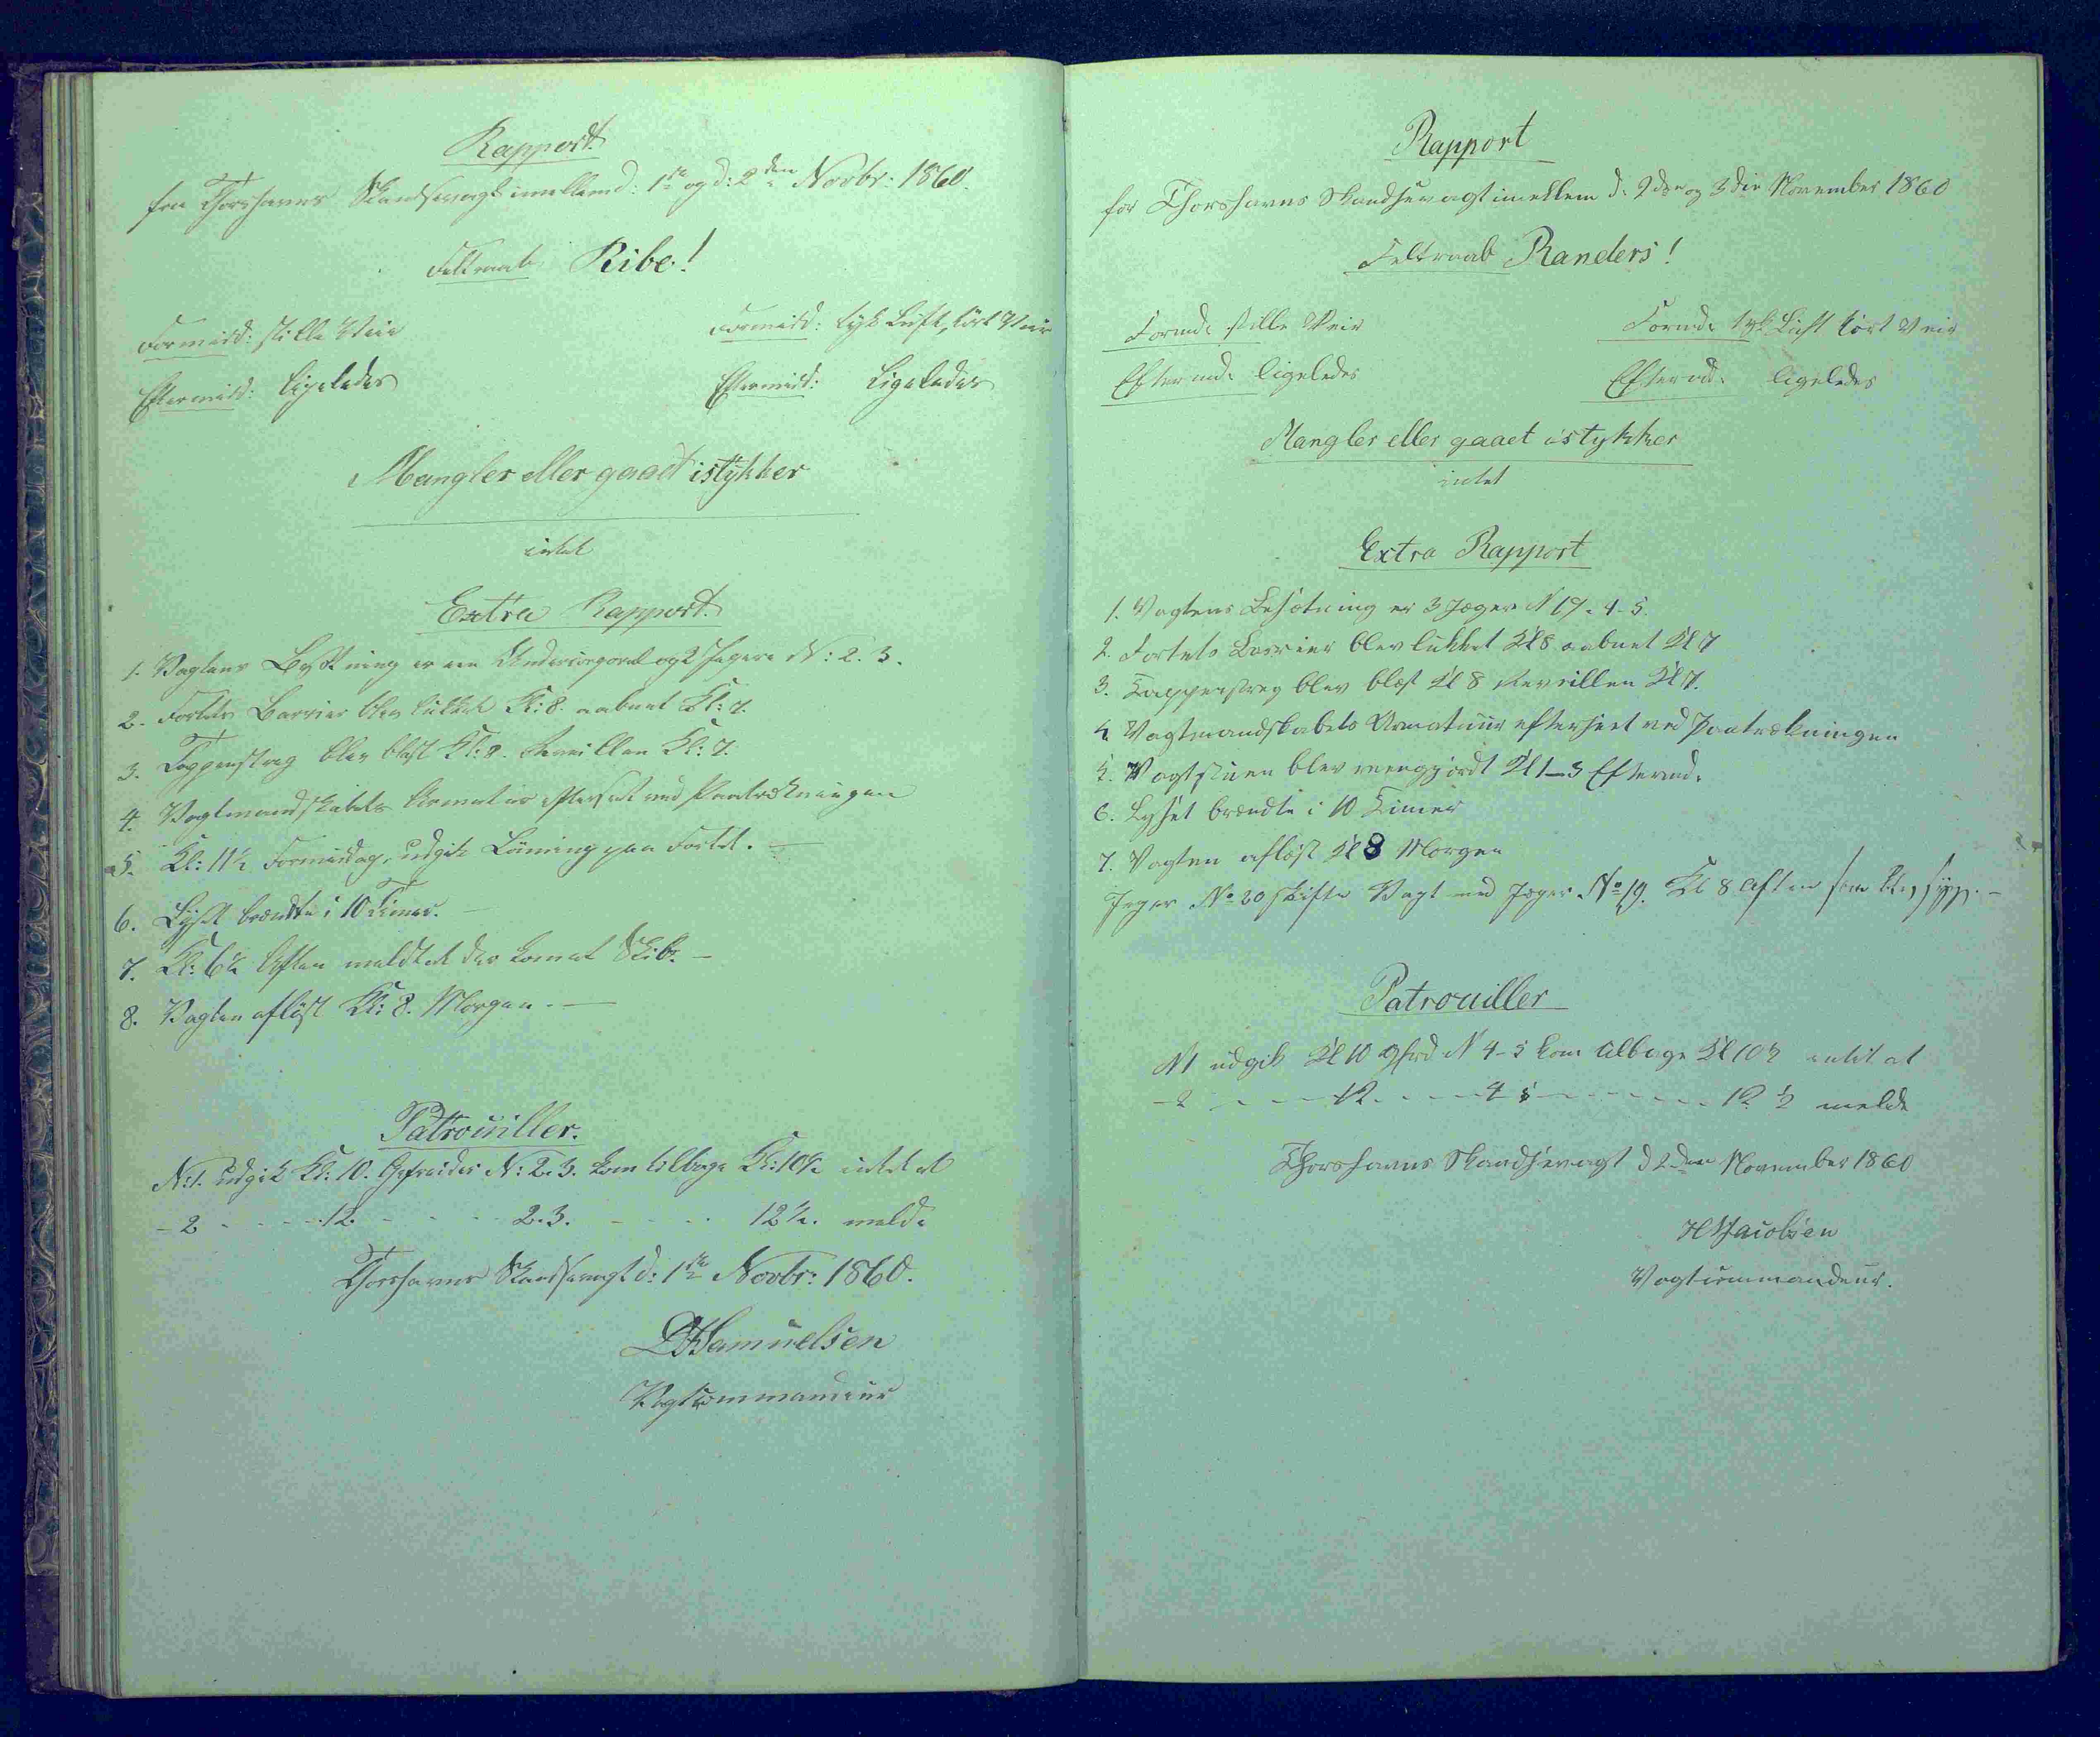 Rapport
fra Thorshavns Skandsevagt imellem d: 1ste og d: 2den Novbr: 1860.
Feltraab Ribe!
Formidd: stille Veir
Formidd: tyk Luft, tört Veir
Eftermidd: ligeledes
Eftermidd: ligeledes
Mangler eller gaaet istykker
intet
Extra Rapport.
1. Vagtens Besætning er een Undercorporal og 2 Jægere N: 2. 3.
2. Fortets Barrier blev lukket Kl: 8. aabnet Kl: 7.
3. Tappenstreg blev blæst Kl: 8. Reveillen Kl: 7.
4. Vagtmandskabets Armatur efterseet ved Paatrækningen
5. Kl: 11½ Formiddag, udgik Lönning paa Fortet. —
6. Lyset brændte i 10 Timer. —
7. Kl: 6½ Aften meldtet der kommet Skib. —
8. Vagten aflöst Kl: 8. Morgen. —
Patrouiller.
N: 1. udgik Kl: 10. Gefreider N: 2. 3. kom tilbage Kl: 10½ intet at
- 2 - - - - 12. - - - - 2. 3. - - - - 12½. melde
Thorshavns Skandsevagt d: 1ste Novbr: 1860.
Samuelsen
Vagtcommandeur
Rapport
for Thorshavns Skandsevagt imellem d. 2den og 3die November 1860
Feltraab Randers!
Formd. stille Veir
Formd. tyk Luft tört Veir
Eftermd. ligeledes
Eftermd. ligeledes
Mangler eller gaaet istykker
intet
Extra Rapport
1. Vagtens Besætning er 3 Jæger N 19. 4-5.
2. Fortets Barrier blev lukket Kl 8 aabnet Kl 7
3. Tappenstreg blev blæst Kl 8 Reveillen Kl 7.
4 Vagtmandskabets Armatuur efterseet ved Paatrækningen
5. Vagtstuen blev reengjordt Kl 1-3 Eftermd.
6. Lyset brændte i 10 Timer
7. Vagten aflöst Kl 8 Morgen
Jæger No 20 skifte Vagt med Jæger No 19. Kl 8 Aften som blev syg. -
Patrouiller
N 1 udgik Kl 10 Gfrd N 4-5 kom tilbage Kl 10½ intet at
- 2 - - - 12. - - - 4 5 - - - - - - 12 ½ melde
Thorshavns Skandsevagt d 2den November 1860
Jacobsen
Vagtcommandeur.